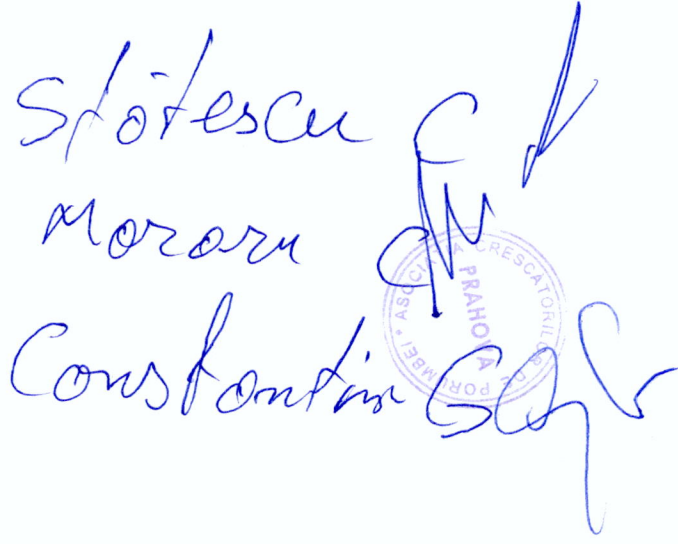 Stătescu
Moraru
Constantin
ASOCIATIA CRESCATORILOR DE PORUMBEI *
PRAHOVA